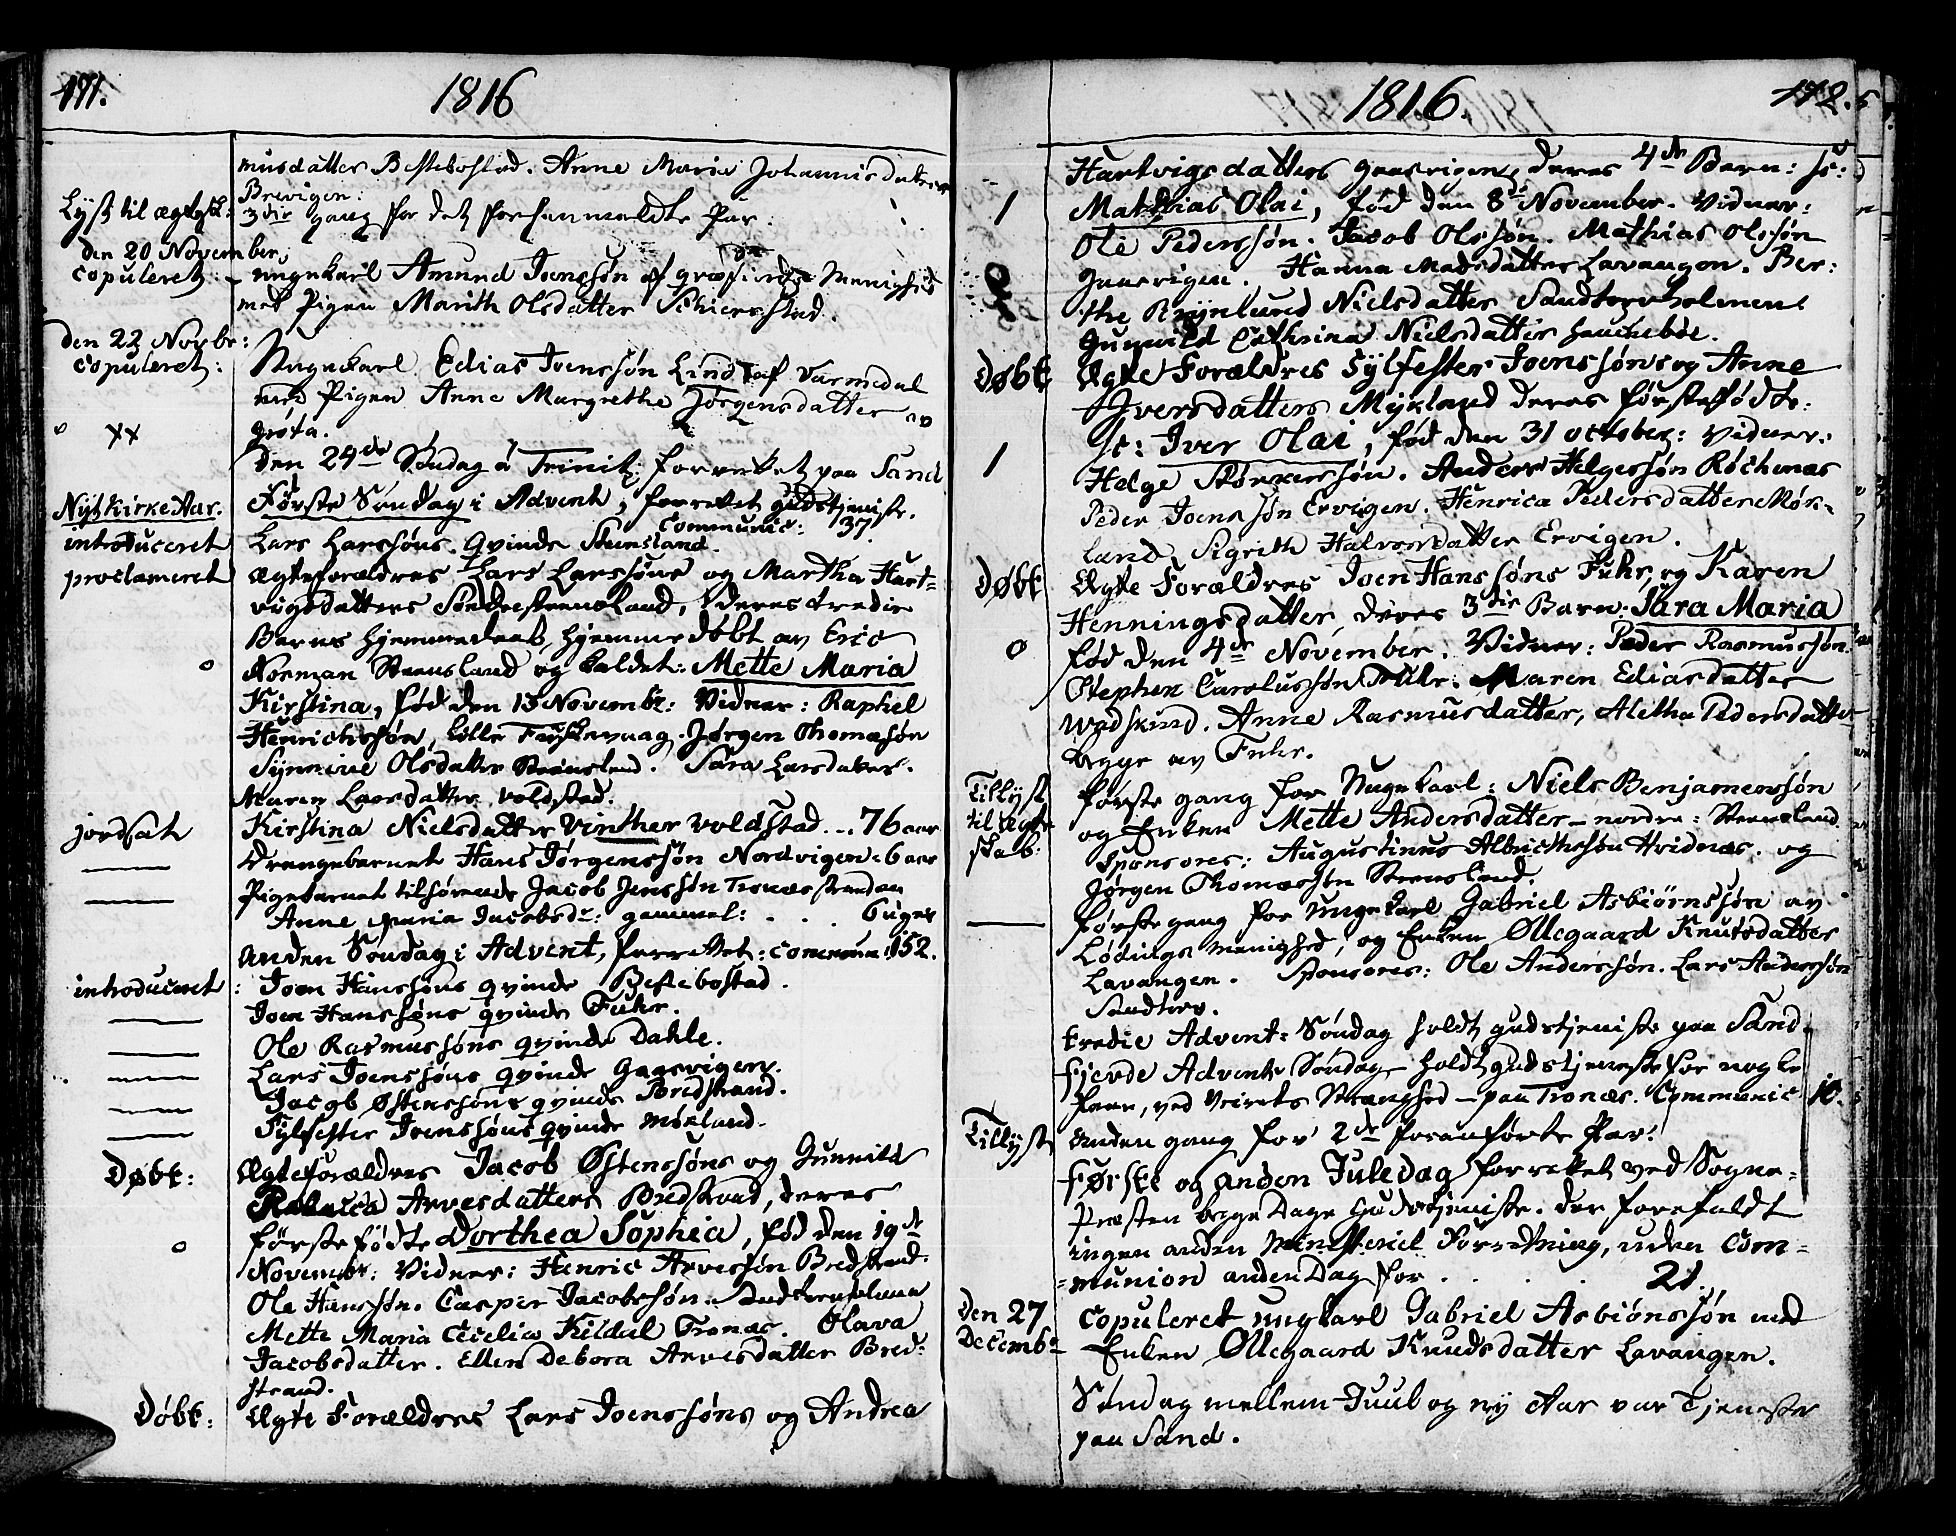 171.
1816
musdatter Bessebostad. Anne Maria Johannisdatter
Brevigen:
Lyst til ægtesk: 3die gang for det forhenmeldte Par:
den 20 November,
copuleret: ungekarl Amund Joenssøn af Græsfiords Menighed
met Pigen Marith Olsdatter Schiersstad.
den 22 Novbr:
copuleret: Ungekarl Edias Joenssøn Lind af Varmedal
med Pigen Anne Margrethe Jørgensdatter av
Grøta.
den 24de Søndag a Trinit: forrettet paa Sand
Nyt Kirke Aar. Første Søndag i Advent, forrettet gudstjeniste.
Communic: 37.
introduceret Lars Larssøns Qvinde Steensland.
proclameret Ægteforældres Lars Larssøns og Martha Hart-
vigsdatters Søndresteensland, deres tredie
Barns hjemmedaab, hjemmedøbt av Eric
o Norman Steensland og kaldet: Mette Maria
Kirstina, fød den 13 Novembr: Vidner: Raphel
Henrichssøn, Lille Fiiskevaag. Jørgen Thomasøn
Synnive Olsdatter Steensland. Sara Larsdatter.
Maren Larsdatter Voldstad.
jordsat Kirstina Nielsdatter Vinther Voldstad... 76 aar
Drengebarnet Hans Jørgenssøn Nordvigen: 6 aar
Pigebarnet tilhørende Jacob Jenssøn Tronæsstranden
Anne Maria Jacobsdr: gammel: . . . 6 uger
Anden Søndag i Advent, forrettet: commun: 152.
introduceret: Joen Hanssøns qvinde Bessebostad.
Joen Hanssøns qvinde Fuhr.
Ole Rasmussøns qvinde Dahle.
Lars Joenssøns qvinde Gaasvigen.
Jacob Østenssøns qvinde Bredstrand.
Sylfester Joenssøns qvinde Mørland.
Døbt: Ægteforældres Jacob Østenssøns og Gunnild
Rebecca Arvesdatters Bredstrand, deres
førstefødte Dorthea Sophia, fød den 19de
o Novembr: Vidner: Henric Arvessøn Bredstrand.
Ole Hanssøn. Casper Jacobssøn. Sandtorgholmen
Mette Maria Cecelia Kildal Tronæs. Olava
Jacobsdatter. Ellen Debora Arvesdatter Bred-
strand.
Døbt: Ægte Forældres Lars Joenssøns og Andrea
1816.
172.
Hartvigsdatters Gaasvigen, deres 4de Barn: sc:
1 Mathias Olai, fød den 8de November. Vidner:
Ole Pederssøn. Jacob Olssøn. Mathias Olssøn
Gaasvigen. Hanna Madsdatter Lavangen. Ber-
the Brynlund Nielsdatter Sandtorgholmen
Gunnild Cathrina Nielsdatter Haukebøe.
Døbt Ægte Forældres Sylfester Joenssøns og Anne
Iversdatters Mykland deres førstefødte:
sc: Iver Olai, fød den 31 October: Vidner:
1 Helge Størkerssøn. Anders Helgessøn Røckenæs
Peder Joenssøn Ervigen. Henrica Pedersdatter Mør-
land, Sigrith Halvorsdatter Ervigen.
Døbt Ægte Forældres Joen Hanssøns Fuhr, og Karen
Henningsdatter, deres 3die Barn: Sara Maria
o fød den 4de November. Vidner: Peder Rasmussøn
Stephen Carolussøn Fuhr. Maren Ediasdatter
Wadskind. Anne Rasmusdatter, Aletha Pedersdatter
begge av Fuhr.
Tillyst første gang for Ungekarl: Niels Benjamenssøn
til Ægte- og Enken Mette Andersdatter - nordre: Steensland.
skab: Sponsores: Augustinus Albricthssøn Hvidnæs. og
Jørgen Thomassøn Steensland.
første gang for Ungekarl Gabriel Asbiørnssøn av
Lødings menighed, og Enken Ollegaard Knutsdatter
Lavangen. Sponsores: Ole Anderssøn. Lars Anderssøn
Sandtorv.
tredie Advent: Søndag holdt gudstjeniste paa Sand.
fjerde Advents Søndag holdt gudstjeneste for nogle
faae, ved Veirets Strænghed - paa Tronæs. Communic 10.
Tillyst anden gang for 2de foranførte Par:
Første og anden Juledag forrettet ved Sogne-
Præsten begge Dage Gudstjeniste. Der forefaldt
ingen anden Ministeriel Forretning, uden Com-
munion anden Dag for . . . 21.
den 27 copuleret ungkarl Gabriel Asbiønssøn med
Decembr Enken Ollegaard Knudsdatter Lavangen.
Søndag mellem Juul og ny Aar var Tjeneste
paa Sand.